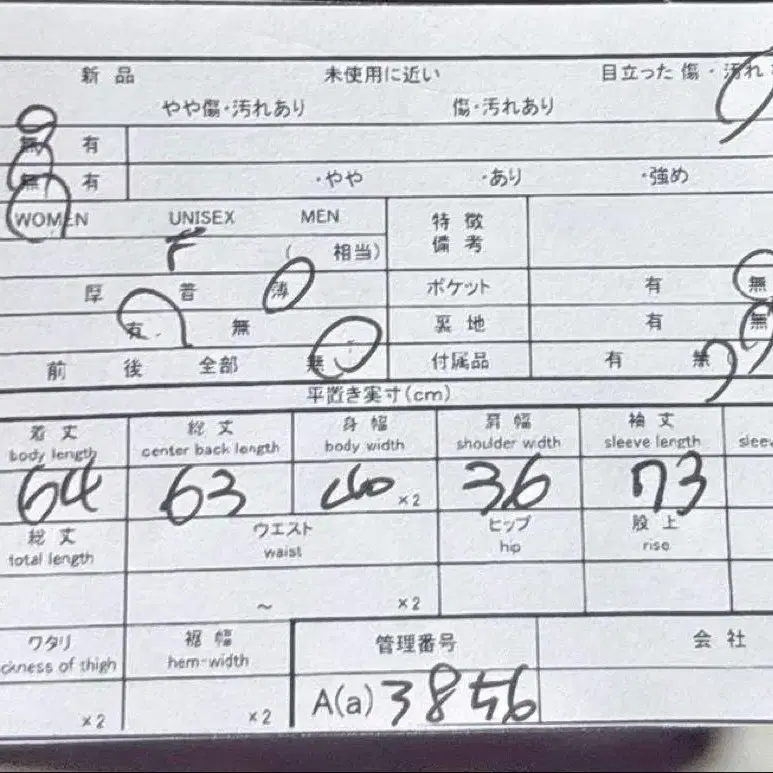 新品 未使用に近い 目立った傷・汚れ
やや傷・汚れあり 傷・汚れあり
無 有
無 有 ・やや ・あり ・強め
WOMEN UNISEX MEN 特徴
備考
F ( 相当)
厚 普 薄 ポケット 有 無
有 無 裏地 有 無
前 後 全部 無 付属品 有 無
平置き実寸(cm)
着丈 総丈 身幅 肩幅 袖丈
body length center back length body width shoulder width sleeve length slee
64 63 40 ×2 36 73
総丈 ウエスト ヒップ 股上
total length waist hip rise
~ ×2
ワタリ 裾幅 管理番号 会社
ckness of thigh hem-width
×2 ×2 A(a) 3856